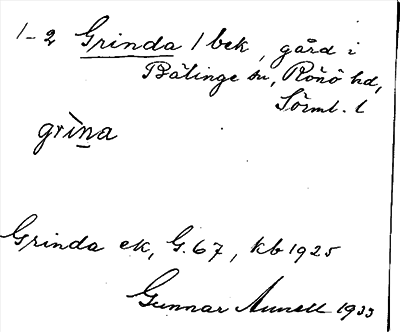 1-2 Grinda 1 bek, gård i
Bälinge sn, Rönö hd,
Södml. l
grìn̲a
Grinda ek, G. 67, kb 1925
Gunnar 1933